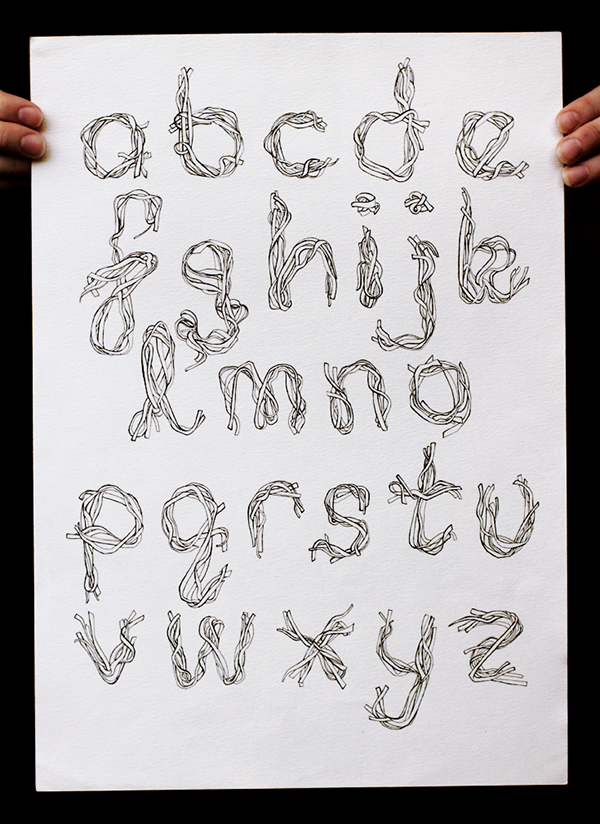 a b c d e
f g h i j k
l m n o
p q r s t u
v w x y z